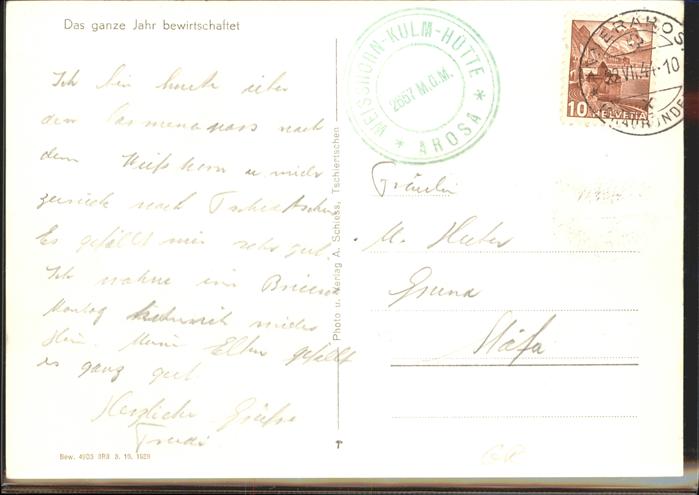 Das ganze Jahr bewirtschaftet
WEISSHORN-KULM-HÜTTE
2657 M.Ü.M.
* AROSA *
INNERAROSA
VII.44-10
(GRAUBÜNDEN)
10 HELVETIA
Ich bin heute über
den Carmenapass nach
dem Weisshorn u. wieder
zurück nach Tschiertschen
Es gefällt mir sehr gut.
Ich wohne im
Montag ich wieder
Heim. Meine Eltern gefällt
es ganz gut.
Herzliche Grüsse
Trudi
Photo u. Verlag A. Schiess, Tschiertschen
Fräulein
M.
Grund
Stäfa
Bew. 4903 BRB 3. 10. 1939
GR